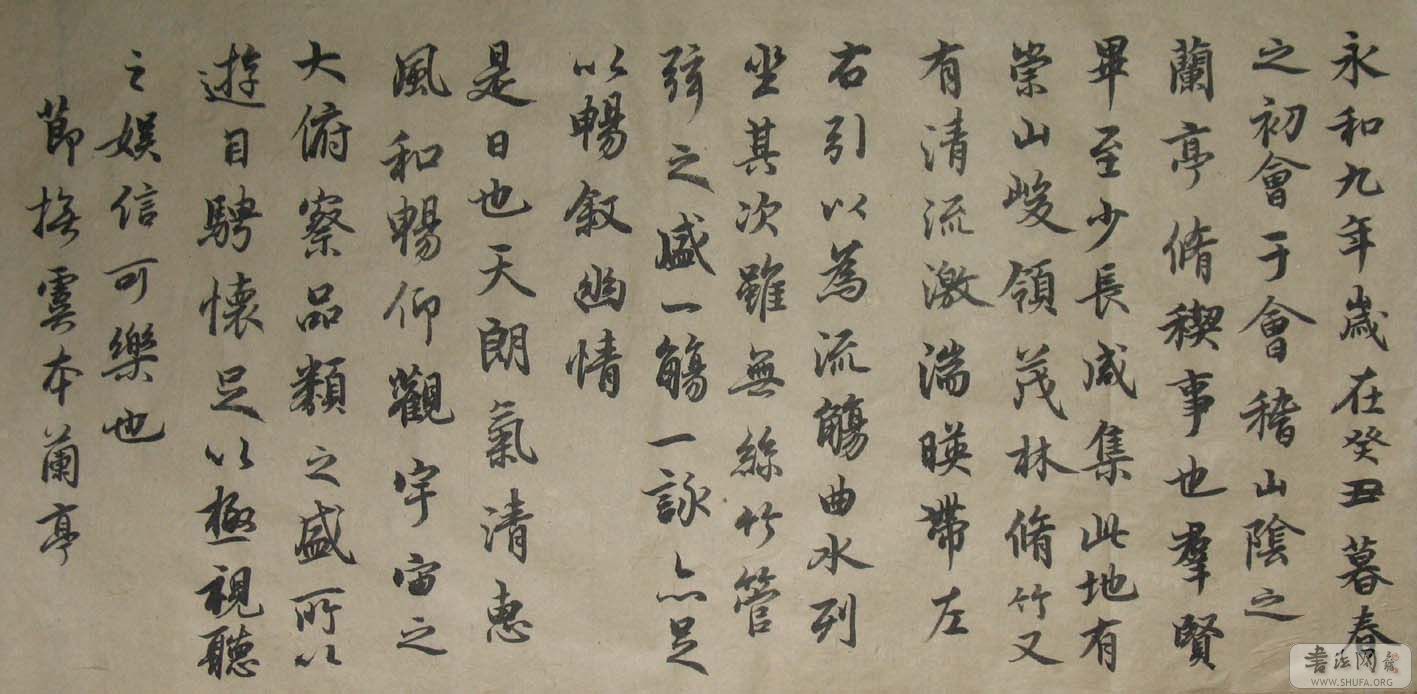 永和九年歲在癸丑暮春
之初會于會稽山陰之
蘭亭脩稧事也羣賢
畢至少長咸集此地有
崇山峻領茂林脩竹又
有清流激湍暎帶左
右引以為流觴曲水列
坐其次雖無絲竹管
弦之盛一觴一詠亦足
以暢敘幽情
是日也天朗氣清惠
風和暢仰觀宇宙之
大俯察品類之盛所以
遊目騁懷足以極視聽
之娛信可樂也
節撫虞本蘭亭
書法网
WWW.SHUFA.ORG